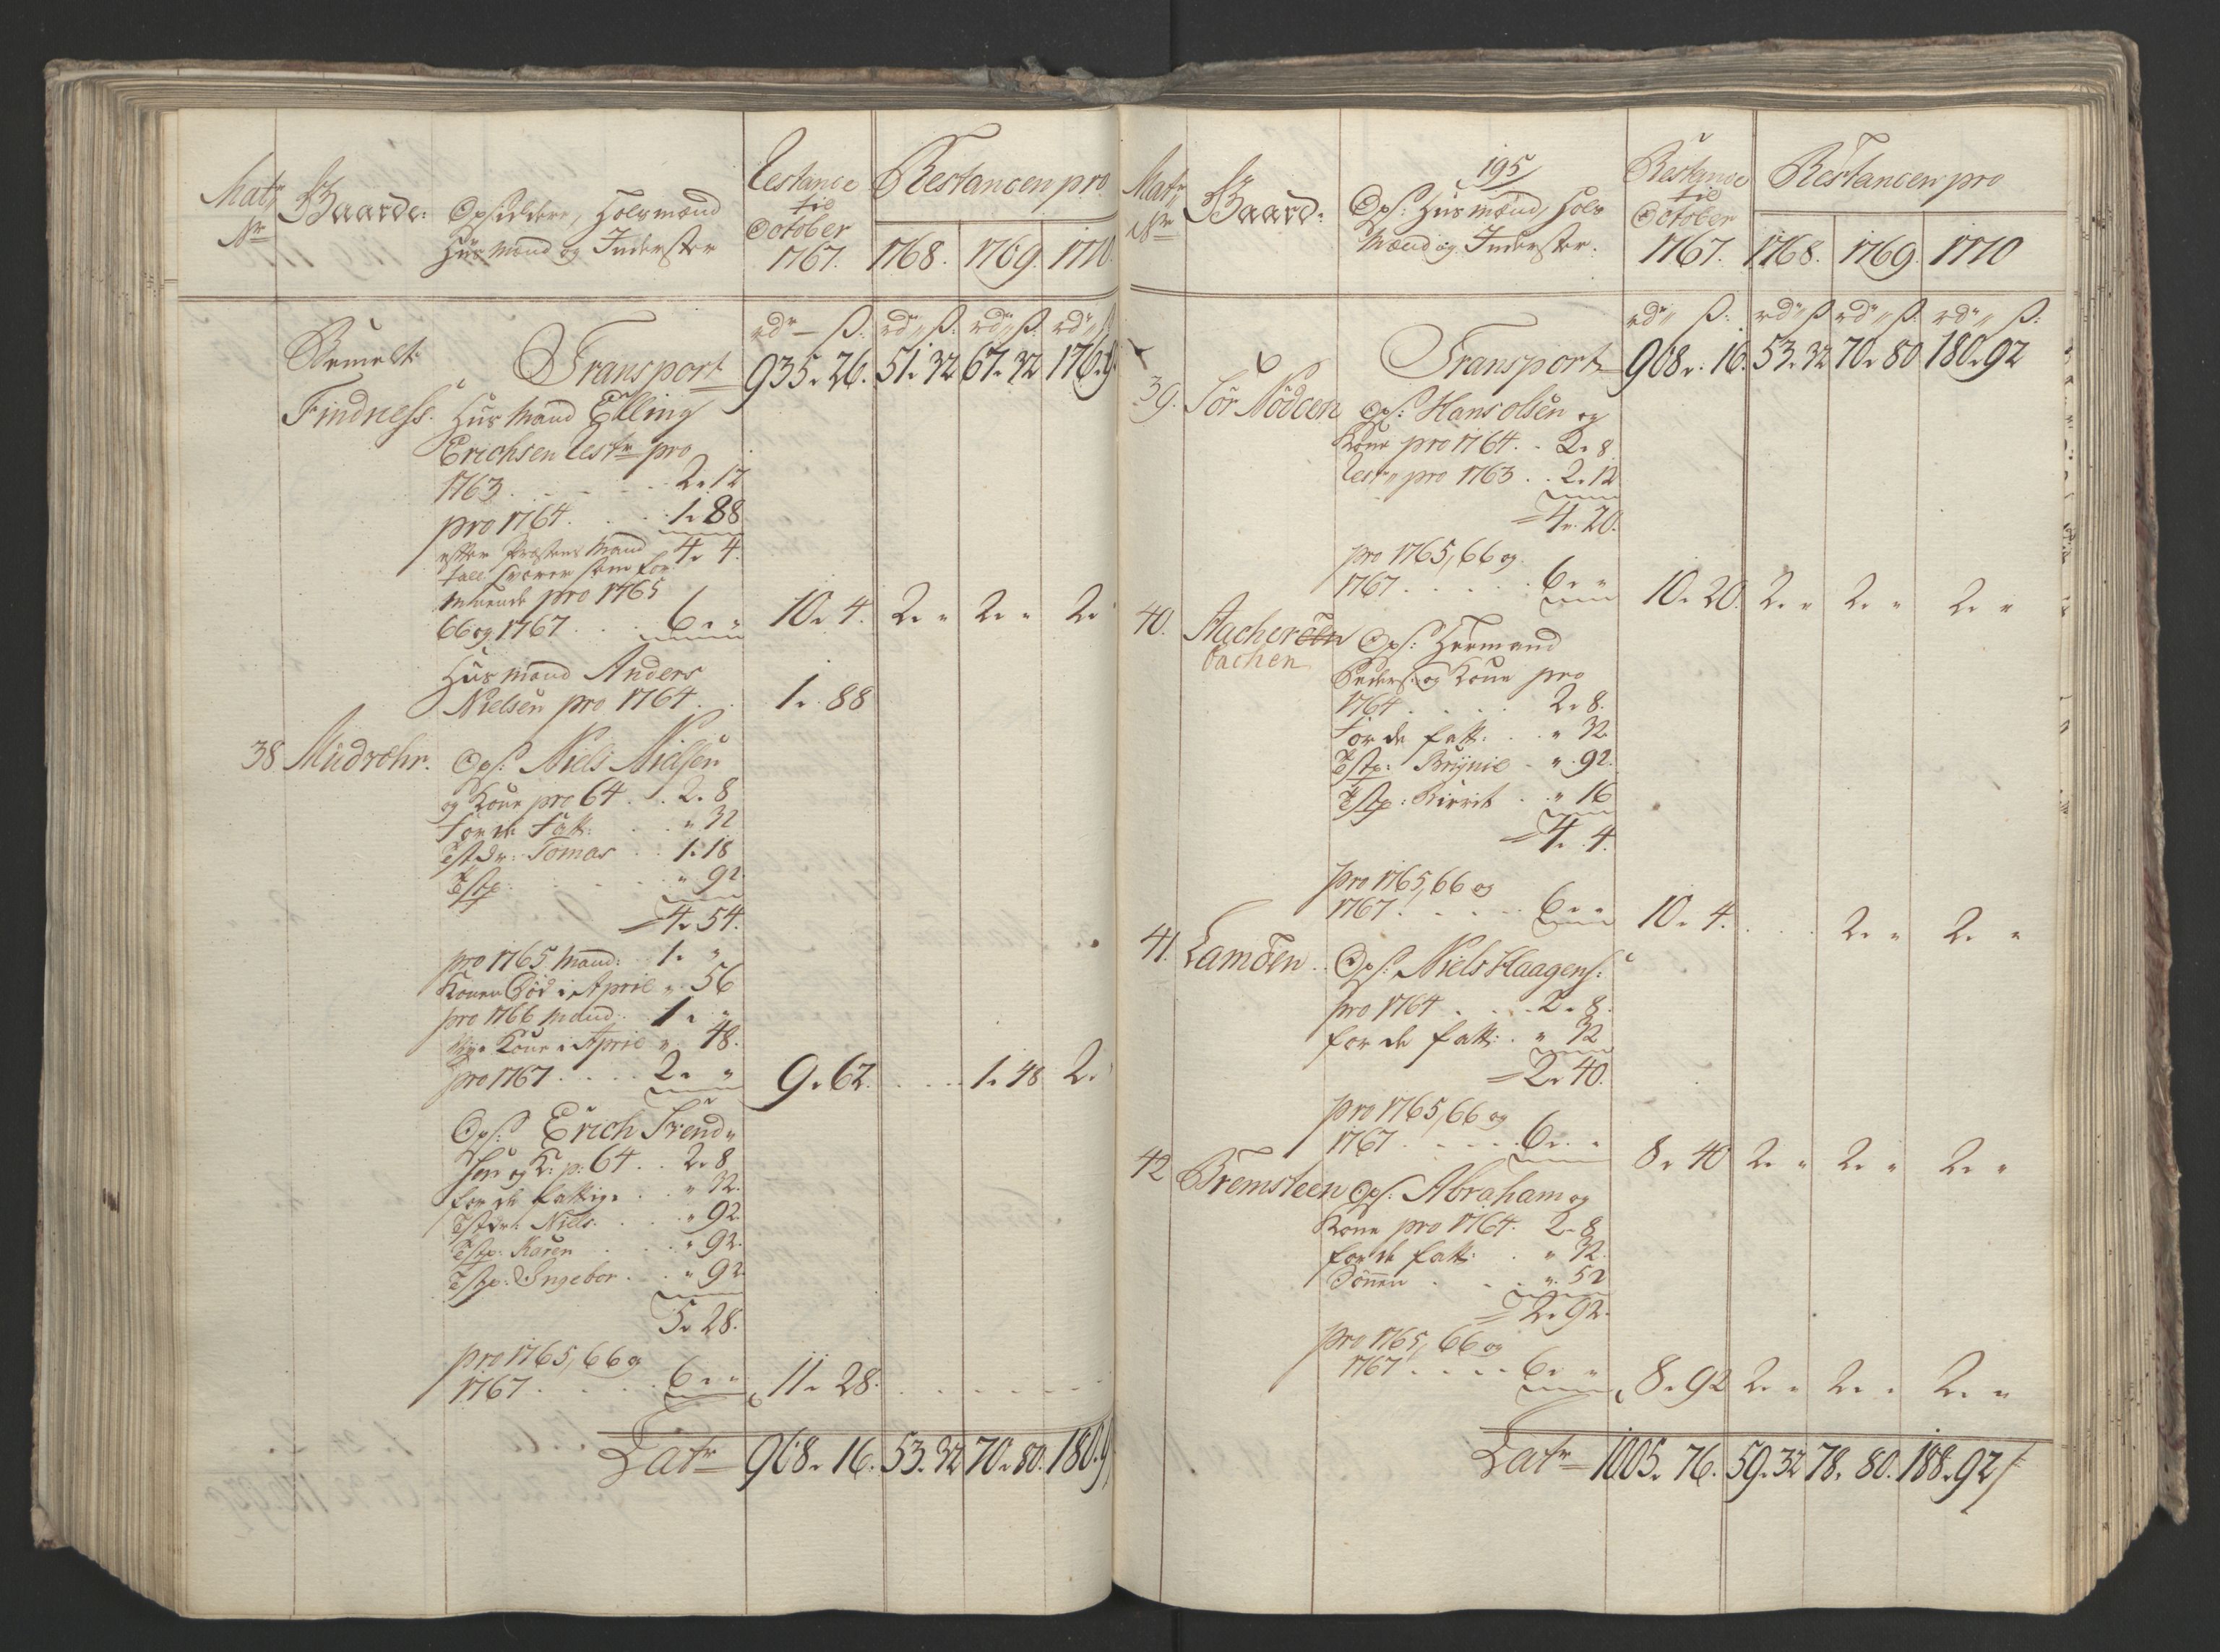 Matr Nr
Gaarde:
Opsiddere, Holsmænd
Huusmænd og Inderster
Restance
til
October
1767.
Restancen pro
1768. 1769. 1770.
rdr — ß: rdr ß: rdr ß rdr ß
Bemelte
Findness.
Transport 935 " 26. 51 " 32 67 " 32 176 " 9
Huusmand Elling
Erichsen Rest pro
1763 . . . . 2 " 12
pro 1764 . . . 1 " 88
4 " 4.
efter Præstens Mand
tall svarer som for
pro 1765
66 og 1767 . . . 6 " " 10 " 4. 2 " " 2 " " 2 "
Huusmand Anders
Nielsen pro 1764 . . 1 " 88
38 Midrøhr. Ops: Niels Nielsen
og Kone pro 64 . . 2 " 8
For de Fatt: . . " 32
Tstdr: Tomas . . 1 " 18
Tstp: . . . " 92.
4 " 54.
pro 1765 Mand: 1 " "
Konen død i April " 56
pro 1766 Mand . 1 " "
Nye Kone i April " 48.
pro 1767 . . . . 2 " " 9 " 62. . . . . 1 " 48 2 "
Ops: Erich Svend"
sen og K: p: 64 . . 2 " 8
for de fattige . . " 32.
Tstdr: Niels . . . " 92
Tstp: Karen . . . " 92.
Tstp: Ingebor . . " 92
5 " 28.
pro 1765, 66 og
1767 . . . . 6 " " 11 " 28. . . . . . .
Latr 968 " 16. 53 " 32 70 " 80. 180 " 9
Matr Nr
Gaard:
195
Ops: Huusmænd, Hols
Mænd og Inderster.
Restance
til
October
1767.
Restancen pro
1768. 1769. 1770
rdr " ß: rdr ß rdr " ß: rdr " ß:
Transport 968 " 16. 53 " 32 70 " 80 180 " 92
39. Sør Nödcen Ops: Hans Olsen og
Kone pro 1764 . . 2 " 8.
Rest " pro 1763 . . 2 " 12
4 " 20.
pro 1765, 66 og
1767 . . . . 6 " " 10 " 20. 2 " " 2 " " 2 " "
40. Aacheröen Ops: Hermand
bachen
Peders: og Kone pro
1764 . . . . 2 " 8.
For de fatt: . . " 32
Tstp: Brynie . " 92.
Tstp: Birrit . . " 16
4 " 4.
pro 1765, 66 og
1767 . . . . . 6 " " 10 " 4. . . . 2 " " 2 " "
41. Lamöen . . Ops: Niels Haagens:
pro 1764 . . . . 2 " 8.
for de fatt: . " 32
2 " 40.
pro 1765, 66 og
1767 . . . . . 6 " " 8 " 40 2 " " 2 " " 2 " "
42 Bremsteen Ops: Abraham og
Kone pro 1764. 2 " 8
for de fatt: . " 32.
Sönnen . . . " 52
2 " 92.
pro 1765, 66 og
1767 . . . . 6 " " 8 " 92 2 " " 2 " " 2 " "
Latr 1005 " 76. 59 " 32 78 " 80. 188 " 92